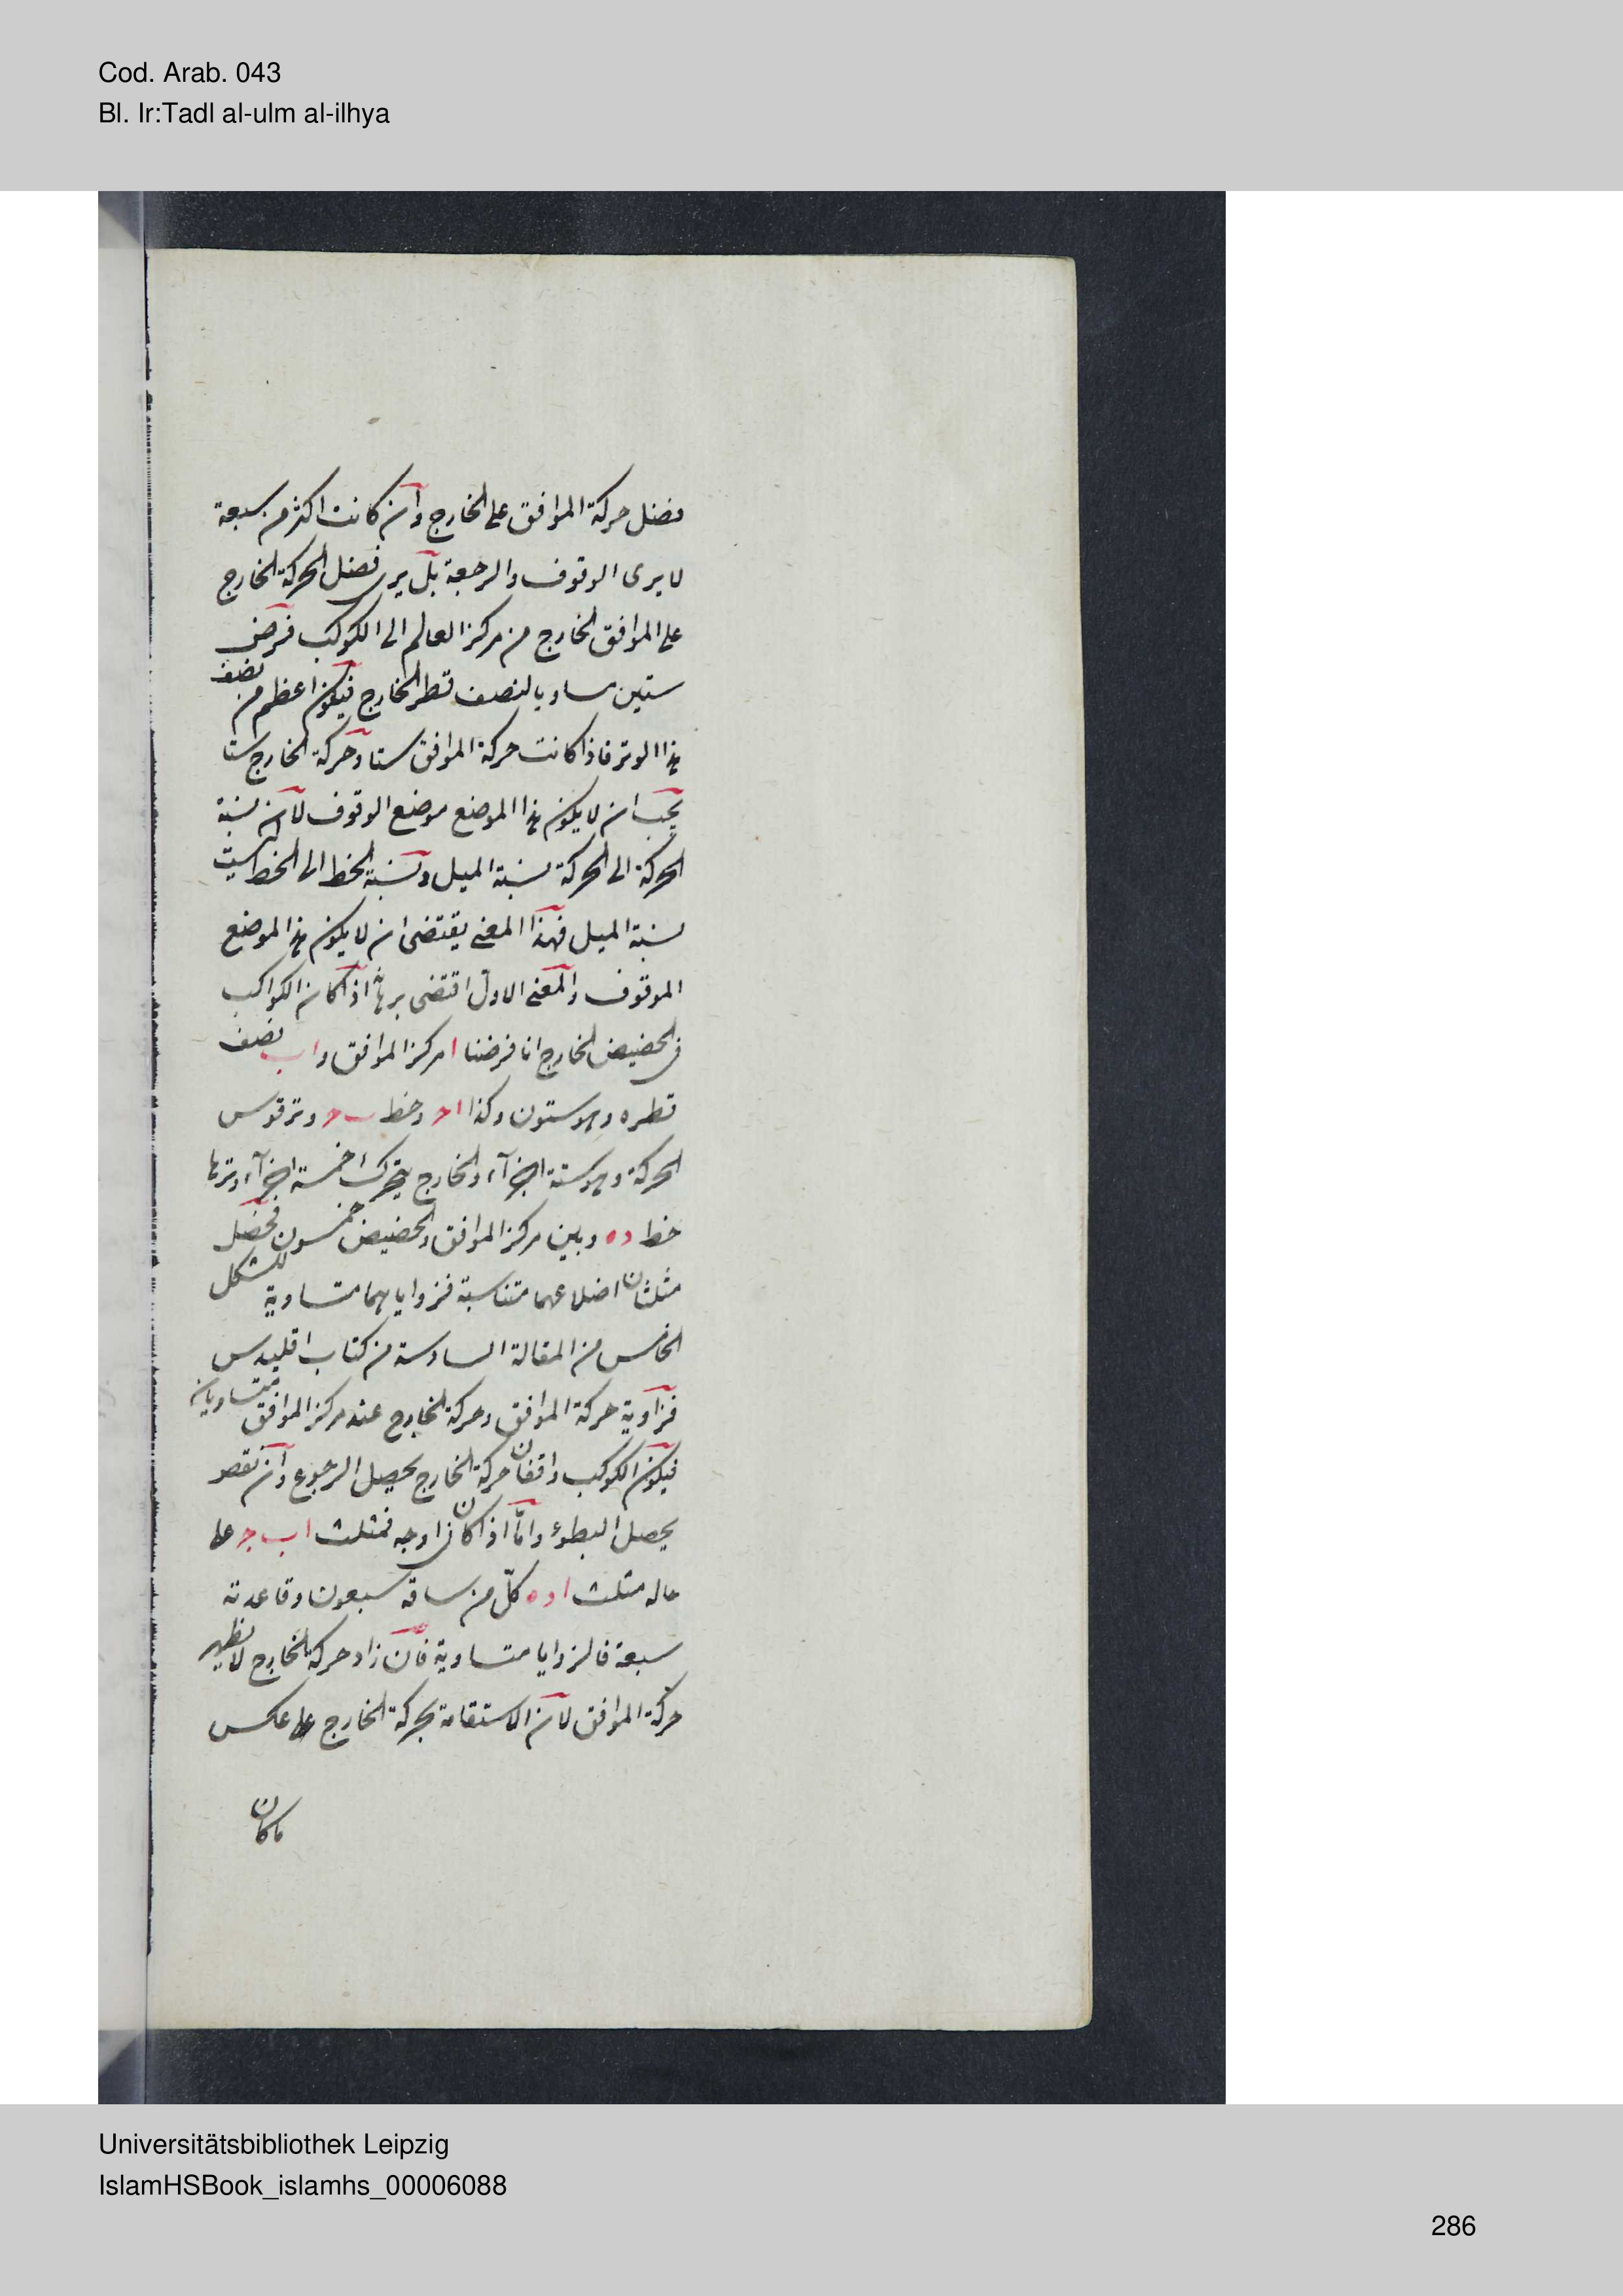 Cod. Arab. 043
Bl. Ir:Tadl al-ulm al-ilhya
فضل حركة الموافق على الخارج وان كانت اكثر من سبعة
لا يرى الوقوف والرجعة بل يرى فضل الحركة الخارج
على الموافق الخارج من مركز العالم الى الكوكب فرض
ستين مساويا لنصف قطر الخارج فيكون اعظم من نصف
هذا الوتر فاذا كانت حركة الموافق ستا وحركة الخارج ستا
يجب ان لا يكون هذا الموضع موضع الوقوف لان نسبة
الحركة الى الحركة نسبة الميل ونسبة الخط الى الخط ليست
نسبة الميل فهذا المعنى يقتضى ان لا يكون هذا الموضع
الموقوف والمعنى الاول اقتضى برهانه اذا كان الكواكب
فى الحضيض الخارج انا فرضنا ا مركز الموافق و ا ب نصف
قطره وهو ستون وكذا ا ح وخط ب ح وتر قوس
الحركة وهو ستة اجزآء والخارج يتحرك خمسة اجزآء وترها
خط د ه وبين مركز الموافق والحضيض خمسون فحصل
مثلثان اضلاعهما متناسبة فزواياهما متساوية للشكل
الخامس من المقالة السادسة من كتاب اقليدس
فزاوية حركة الموافق وحركة الخارج عند مركز الموافق متساويان
فيكون الكوكب واقفا حركة الخارج يحصل الرجوع وان نقصو
يحصل البطوء وامّا اذا كان فى اوجه فمثلث ا ب ج على
حاله مثلث ا د ه كلّ من ساقه سبعون وقاعدته
سبعة فالزوايا متساوية فان زاد حركة الخارج لا يظهر
حركة الموافق لان الاستقامة بحركة الخارج على عكس
ما كان
Universitätsbibliothek Leipzig
IslamHSBook_islamhs_00006088
286